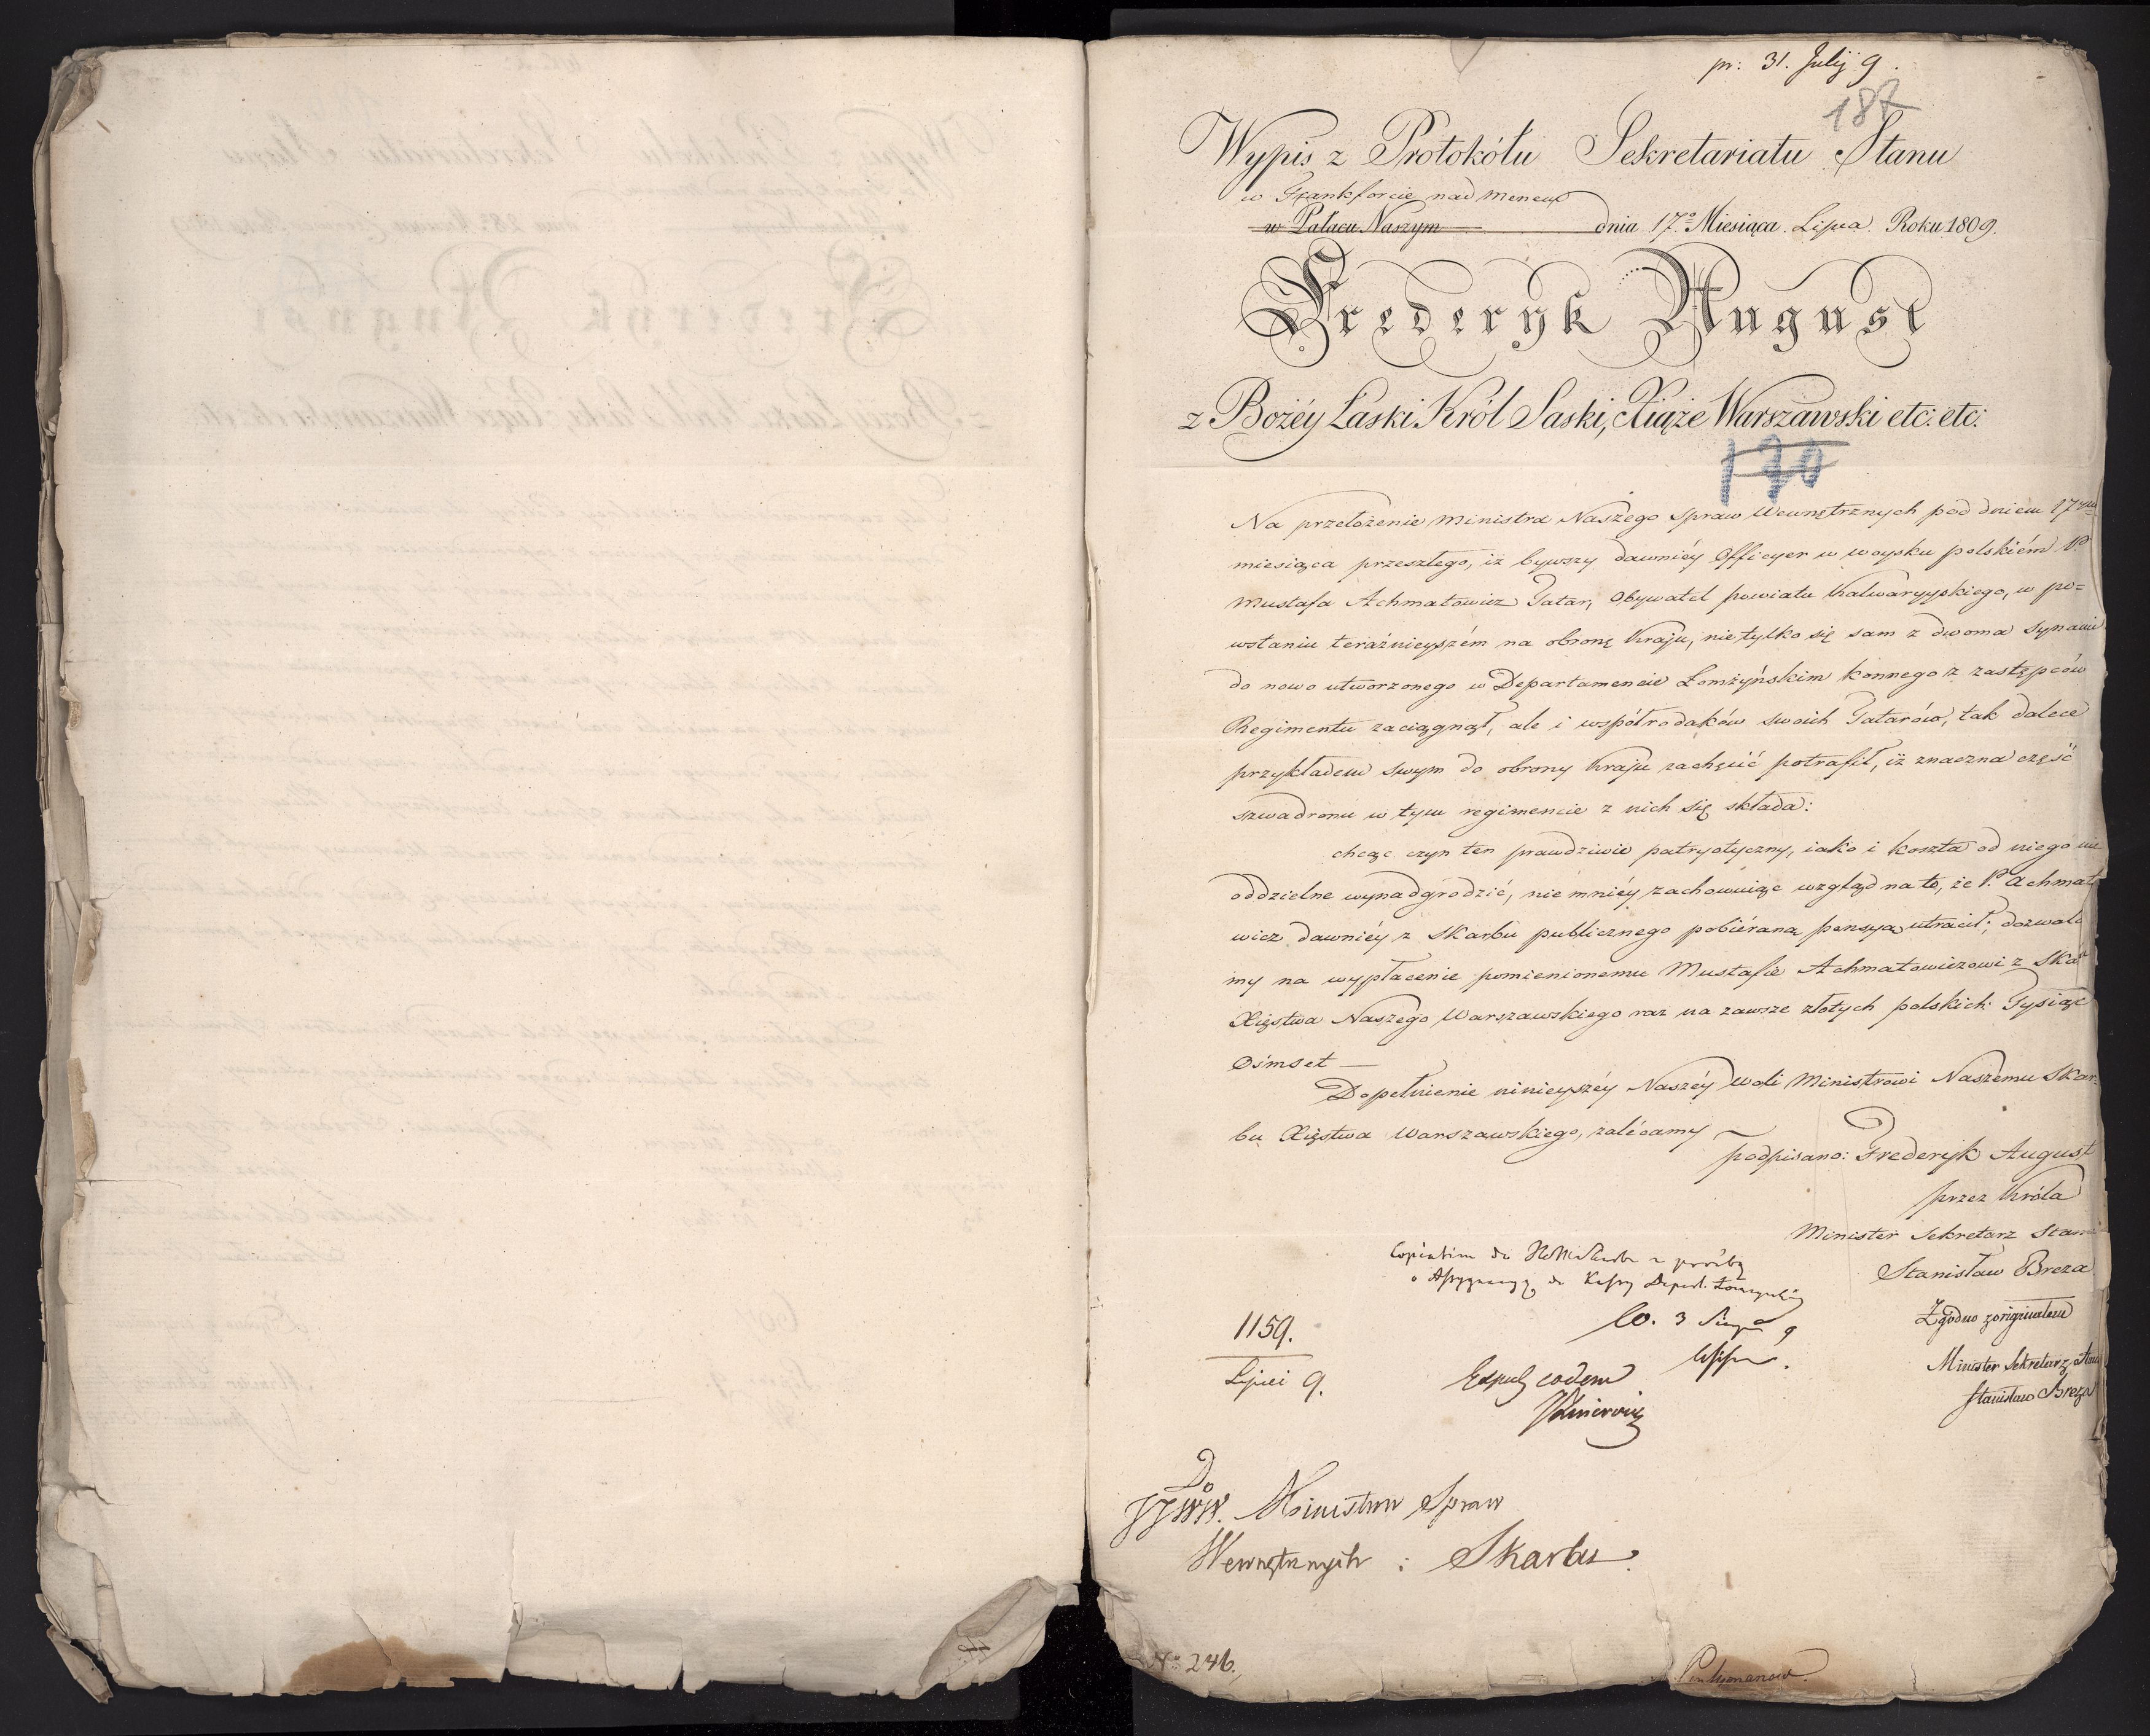 pr: 31. Julij 9.
187
Wypis z Protokółu Sekretariatu Stanu
w Frankforcie nad Menem
w Pałacu Naszym dnia 17º Miesiąca Lipca Roku 1809.
Frederyk August
z Bożéy Łaski Król Saski, Xiąże Warszawski etc: etc:
170
Na przełożenie Ministra Naszego Spraw Wewnętrznych pod dniem 17ym
miesiąca przeszłego, iż bywszy dawniéy Officyer w woysku polskiém P.
Mustafa Achmatowicz Tatar, Obywatel powiatu Kalwaryyskiego, w po=
wstaniu teraźnieyszém na obronę Kraju, nietylko się sam z dwoma synami
do nowo utworzonego w Departamencie Łomżyńskim konnego z zastępców
Regimentu zaciągnął, ale i współrodaków swoich Tatarów, tak dalece
przykładem swym do obrony Kraju zachęcić potrafił, iż znaczna część
szwadronu w tym regimencie z nich się składa:
chcąc czyn ten prawdziwie patryotyczny, iako i koszta od niego nie
oddzielne wynadgrodzić, niemniéy zachowuiąc wzgląd na to, że P. Achmato
wicz dawniéy z Skarbu publicznego pobiéraną pensyą utracił; dozwala
my na wypłacenie pomienionemu Mustafie Achmatowiczowi z Skar
Xięstwa Naszego Warszawskiego raz na zawsze złotych polskich Tysiąc
Ośmset —
Dopełnienie ninieyszéy Naszéy Woli Ministrowi Naszemu Skar=
bu Xięstwa Warszawskiego, zalécamy —
podpisano: Frederyk August
przez Króla
Minister Sekretarz Stanu
Stanisław Breza
Copiatim do z prośbą
o Assygnacyą do Kassy Depart. Łomżyńskiey
3 Sierp 9
Zgodno z originałem
1159.
Lipiec 9.
Minister Sekretarz Stanu
Stanisław Breza
Exped eodem
Do
JJWW. Ministrów Spraw
Wewnętrznych i Skarbu.
No 246.